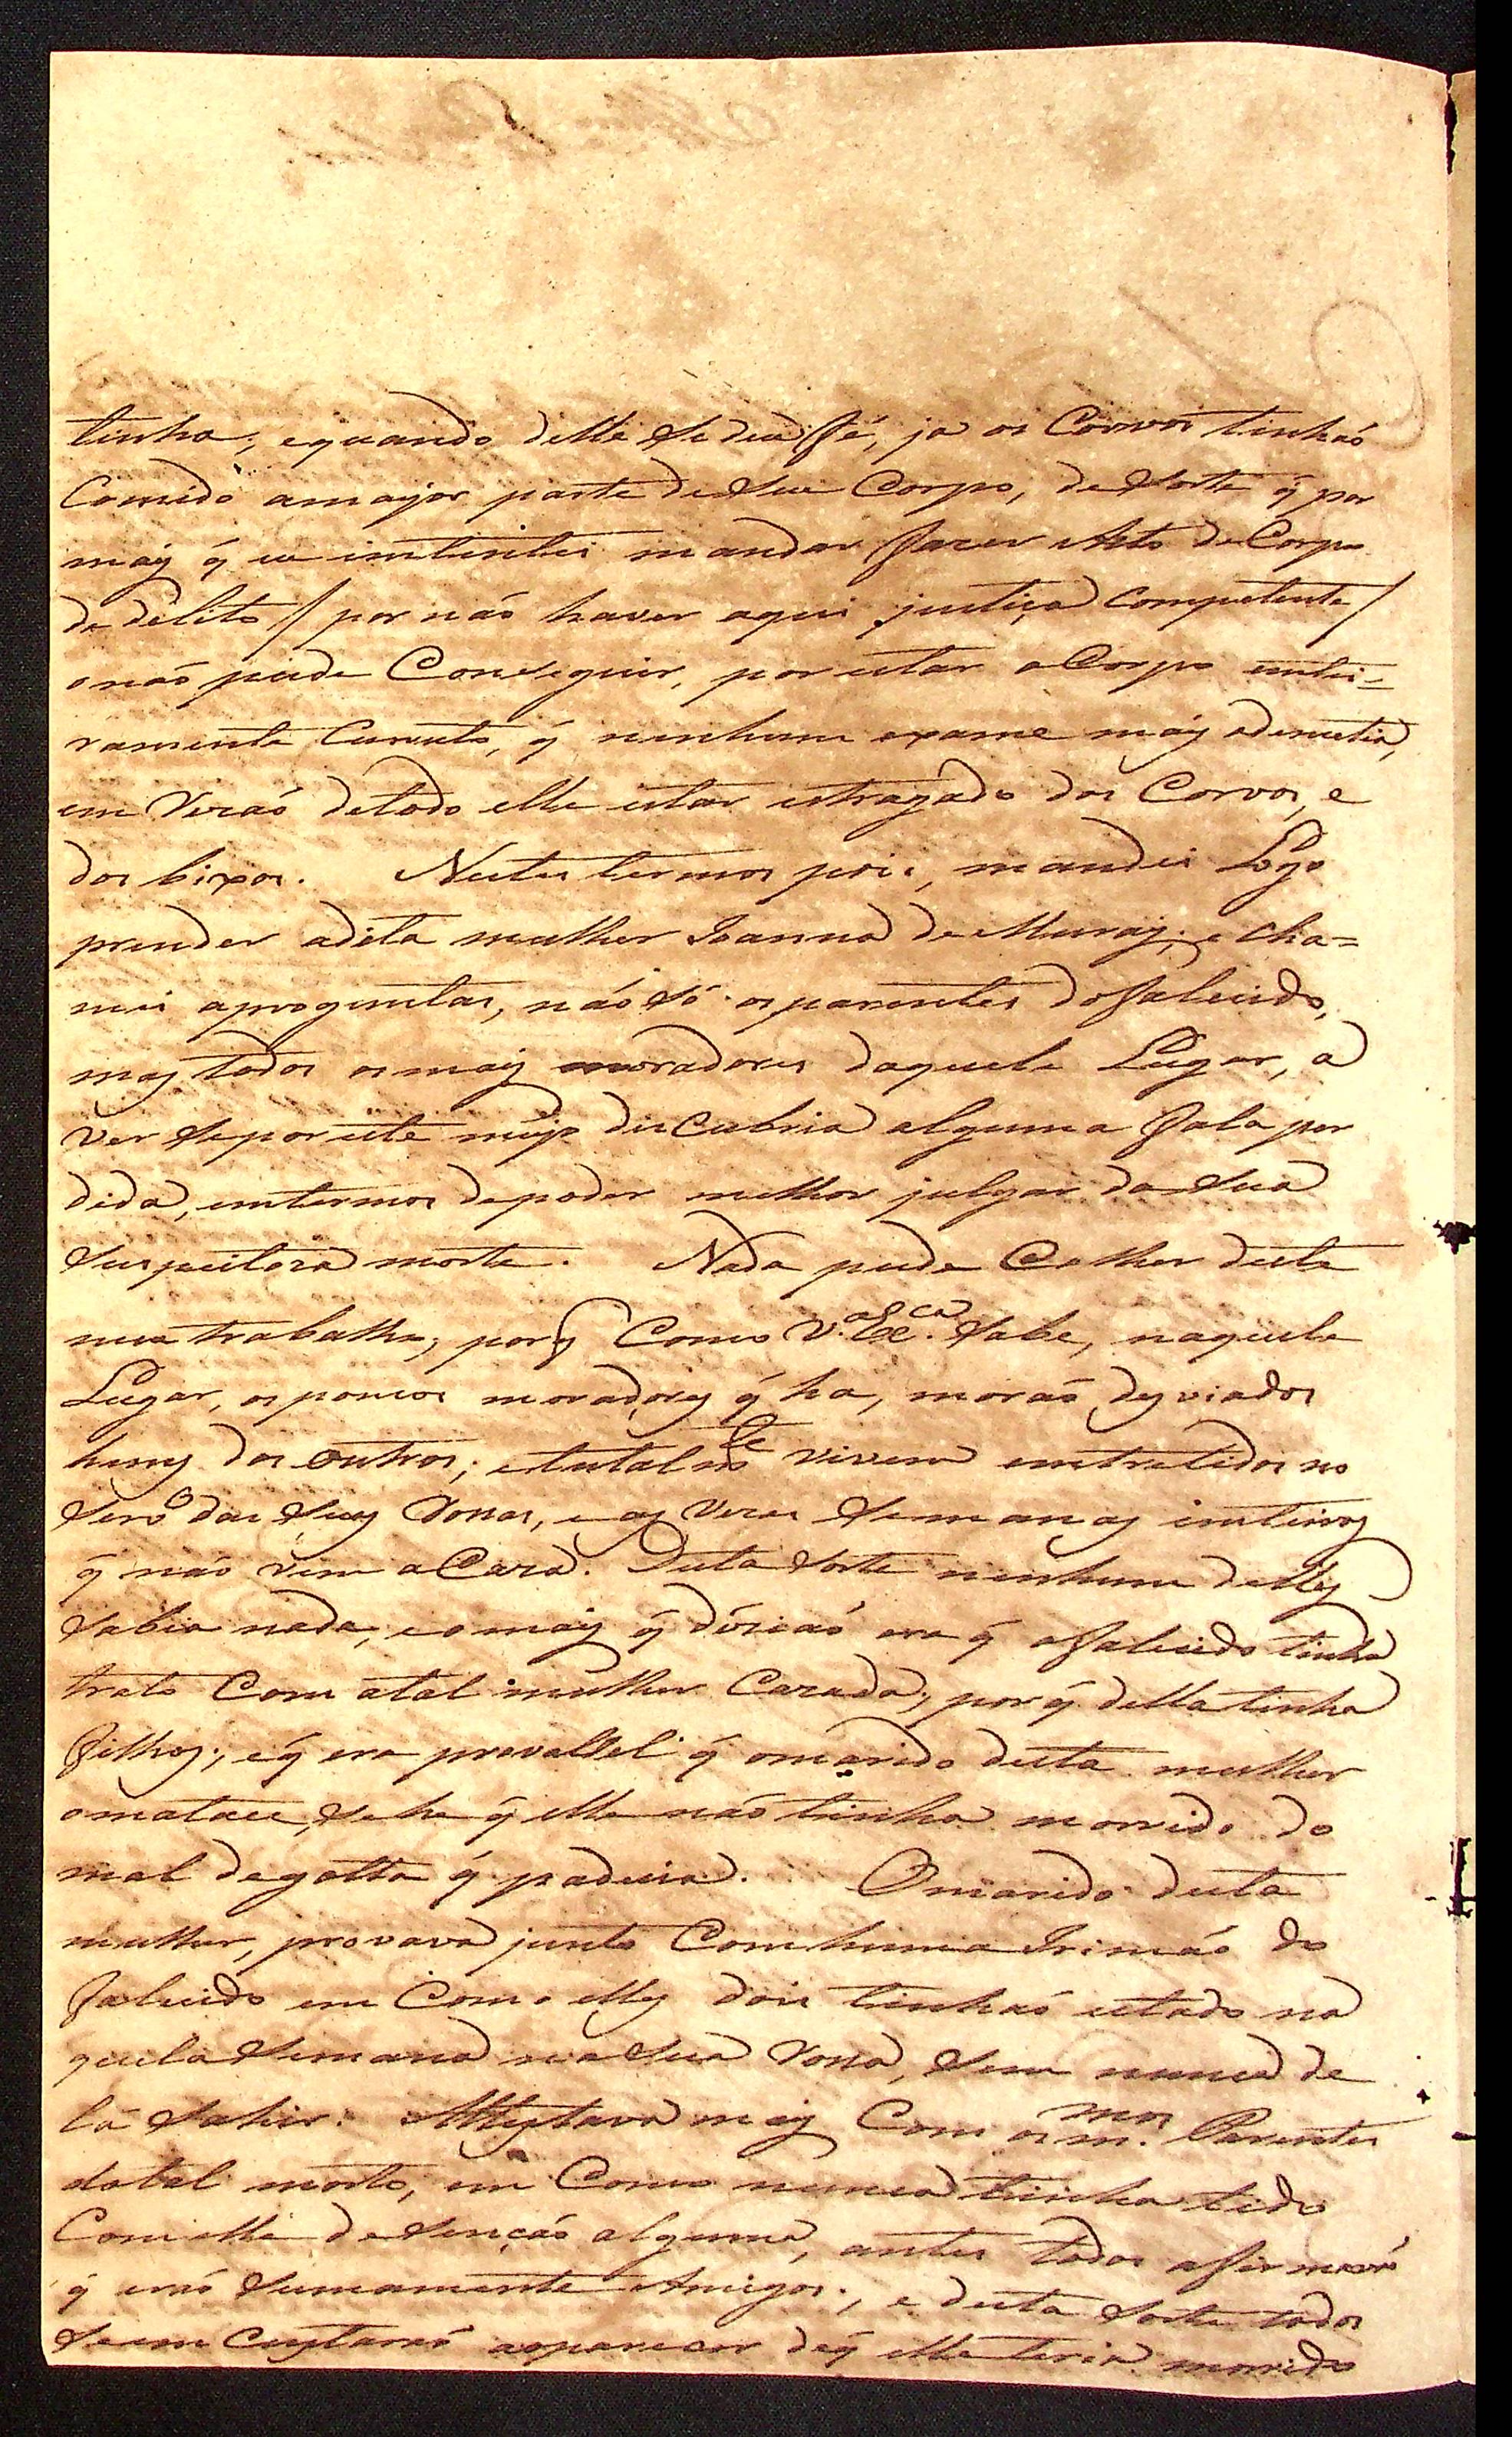 tinha; e quando delle se deu fé, ja os Corvos tinhaó
Comido amayor parte deseu Corpo, desorte q̃ por
maȷ̃s q̃ eu intentei mandar fazer Acto de Corpo
de delito / por náo haver aqui justiça Competente /
o náo pude Conseguir, por estar o Corpo entei=
ramente q̃ nenhum exame maȷ̃s ademetia,
em Vezaó detodo elle estar estragado dos Corvos, e
dos bixos. Nestes termos pois, mandei Logo
prender adita mulher Joanna de e cha=
mei aproguntas, náo só os parentes dofalecido,
mas todos os mais moradores daquele Lugar, a
ver se por este meyo discubria alguma fala per
dida, emtermos depoder melhor julgar da sua
suspeitoza morte. Nada pude Colher deste
meu trabalho; porq̃ Como V.ª Ex.ca sabe, naquele
Lugar, os poucos moradores q̃ ha, moraó desviados
huns dos outros; e vivem emtretidos no
das suas Rossas, e as vezes semanas inteiras
q̃ náo vem a Caza. Desta sorte nenhum delles
sabia nada; e o mais q̃ diziaó era q̃ o falecido tinha
trato Com atal mulher Cazada, por q̃ della tinha
filhos; e q̃ era provalvel q̃ omarido desta mulher
omatace, se he q̃ elle náo tinha morrido do
mal degotta q̃ padecia. Omarido desta
mulher, provava junto Com huma Irmáa do
falecido em Como elles dois tinhaó estado na
quela semana na sua Rossa, sem nunca de
lá sahir. Attestava mais Com os m.mos Parentes
dotal morto, em Como nunca tinha tido
Com elle desençáo alguma, antes todos afirmaraó
q̃ eraó sumamente Amigos; e desta sorte todos
seem Custaraó aoparecer deq̃ elle teria morrido